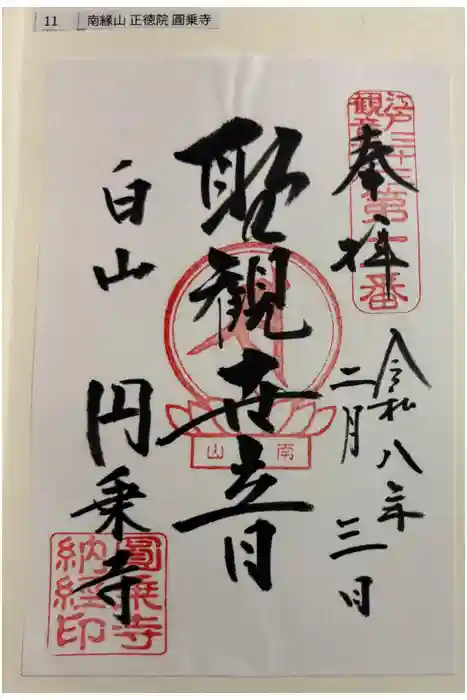 11 南縁山 正徳院 圓乗寺
江戸三十三
観音
第十一番
奉拝
令和八年
二月三日
聖観世音
南 山
白山 円乗寺
圓乗寺
納經印